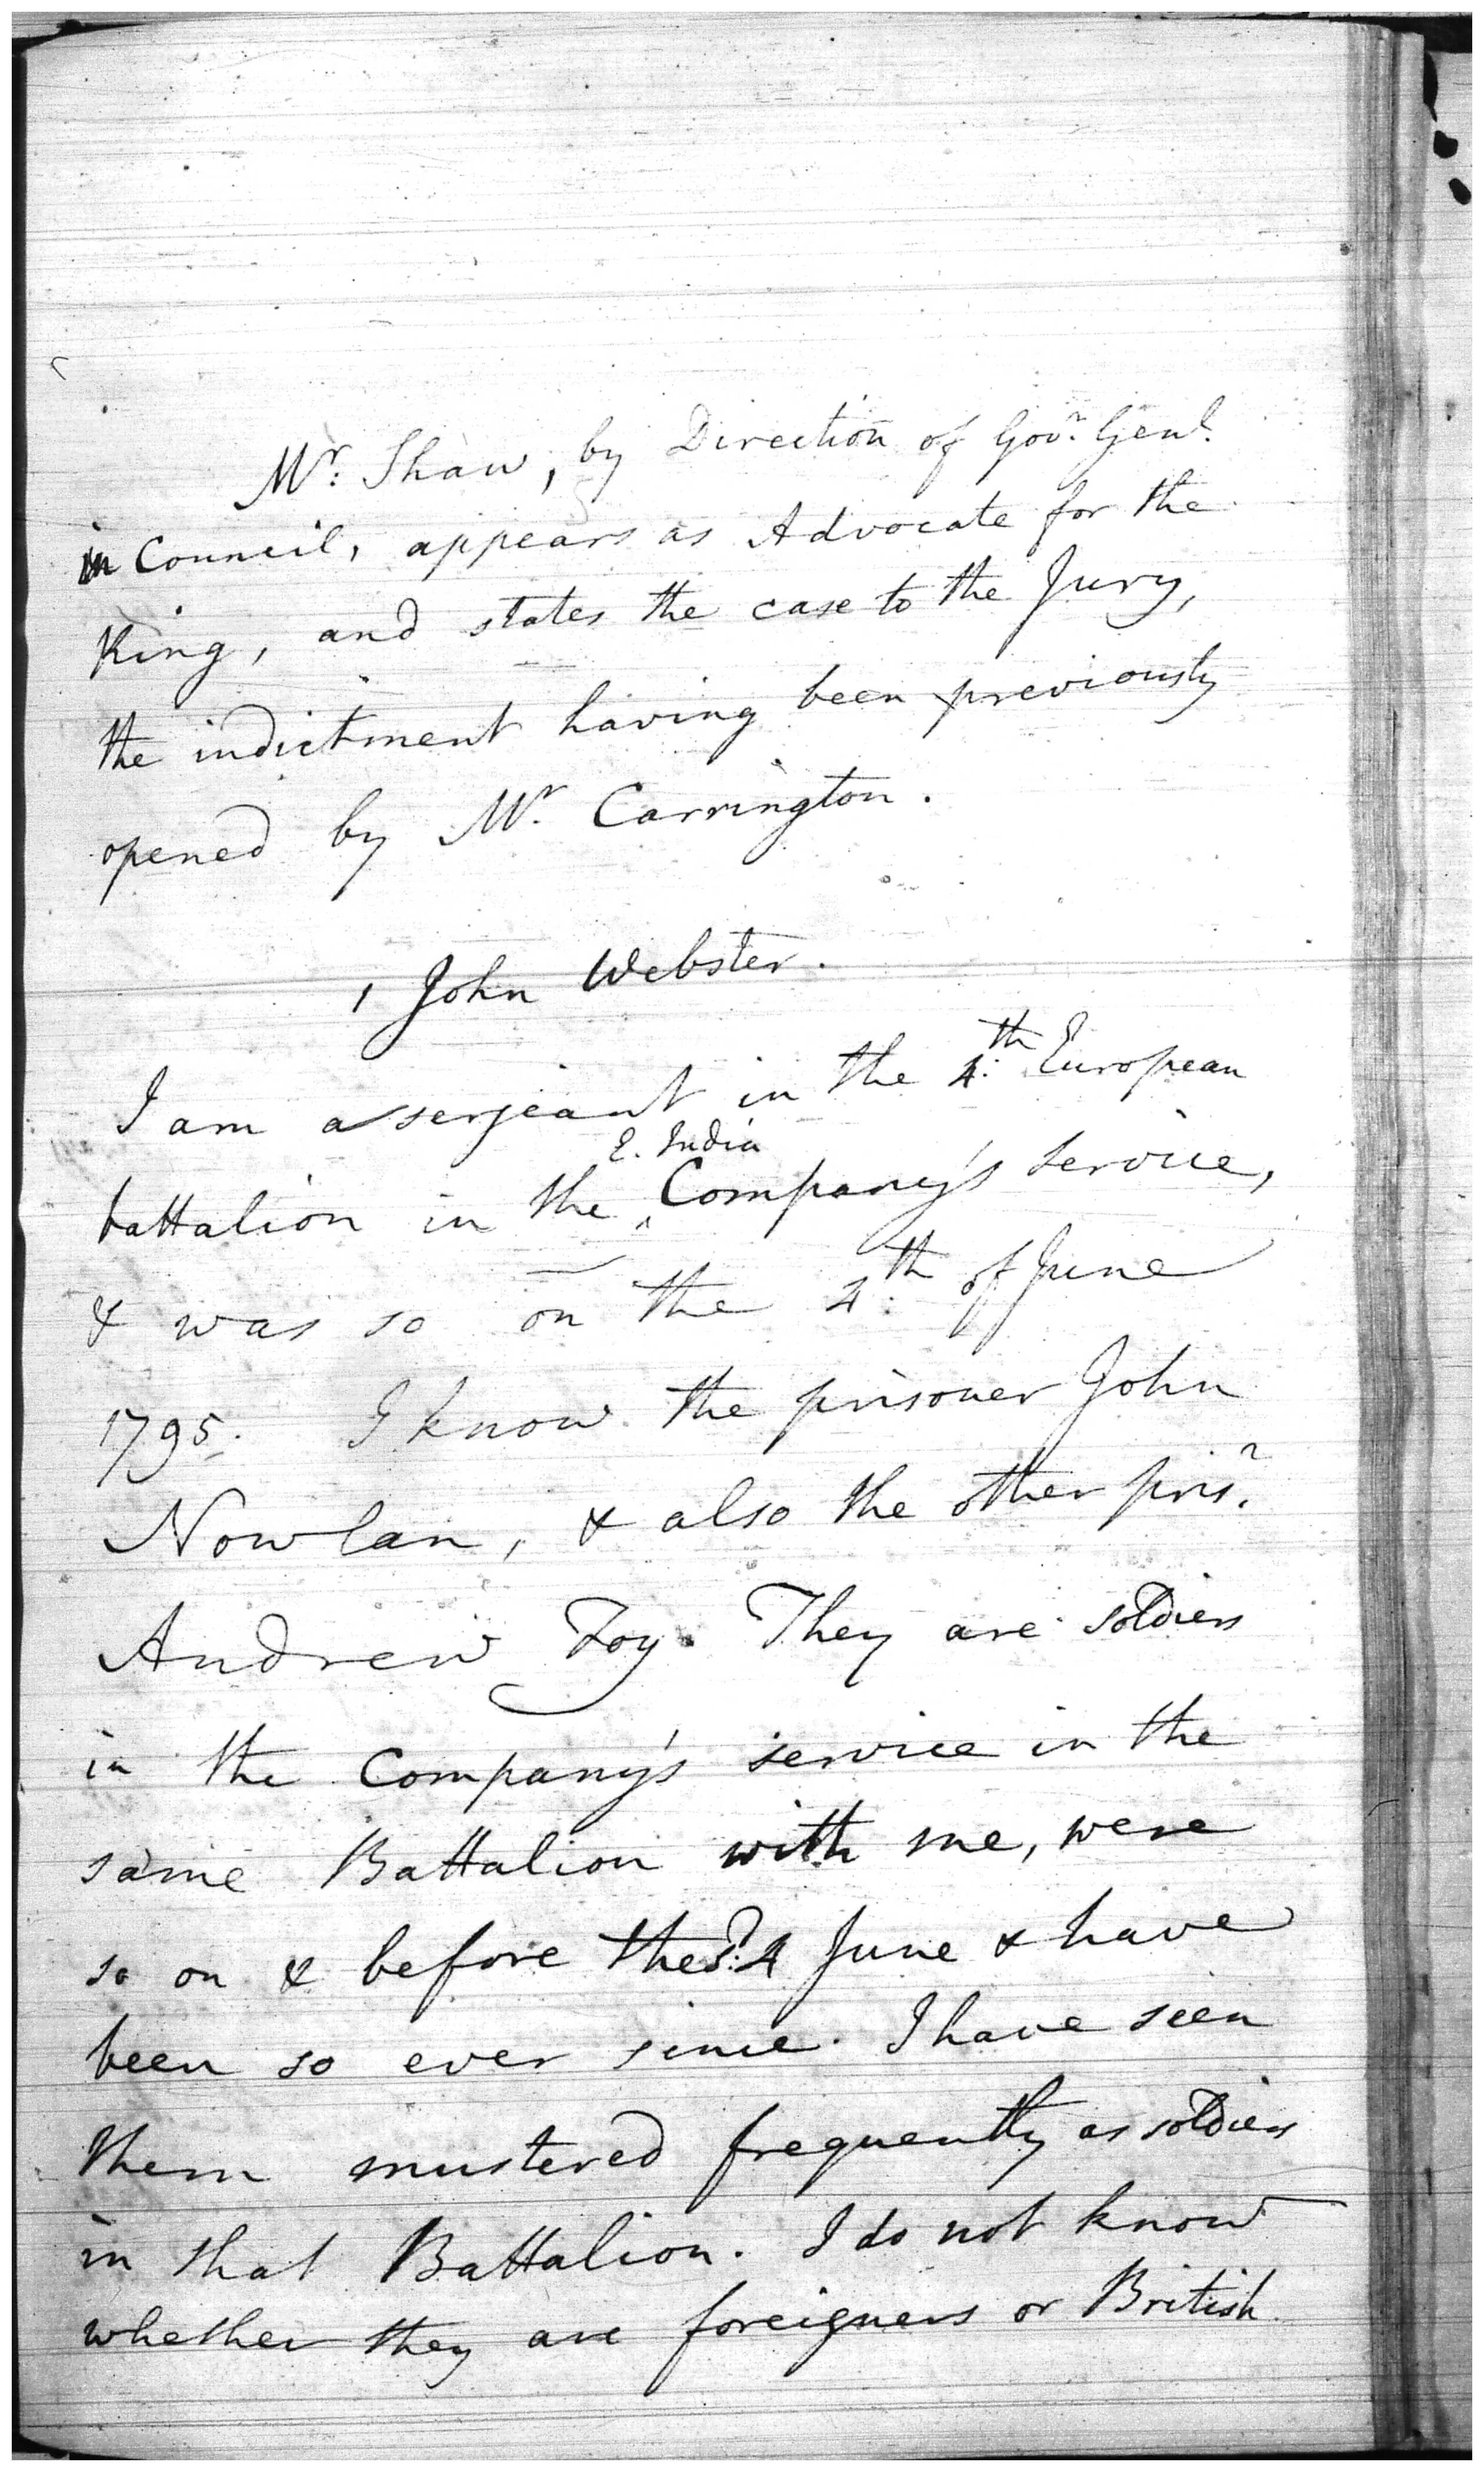 Mr. Shaw, by Direction of Govr. Genl.
in Council, appears as Advocate for the
King, and states the case to the Jury,
the indictment having been previously
opened by Mr. Carrington.
1 John Webster.
I am a serjeant in the 4th. European
E. India
battalion in the ^ Company's service,
& was so on the 4th. of June
1795. I know the prisoner John
Nowlan, & also the other prisr.
Andrew Foy. They are soldiers
in the Company's service in the
same Battalion with me, were
so on & before the sd. 4 June & have
been so ever since. I have seen
them mustered frequently as soldiers
in that Battalion. I do not know
whether they are foreigners or British